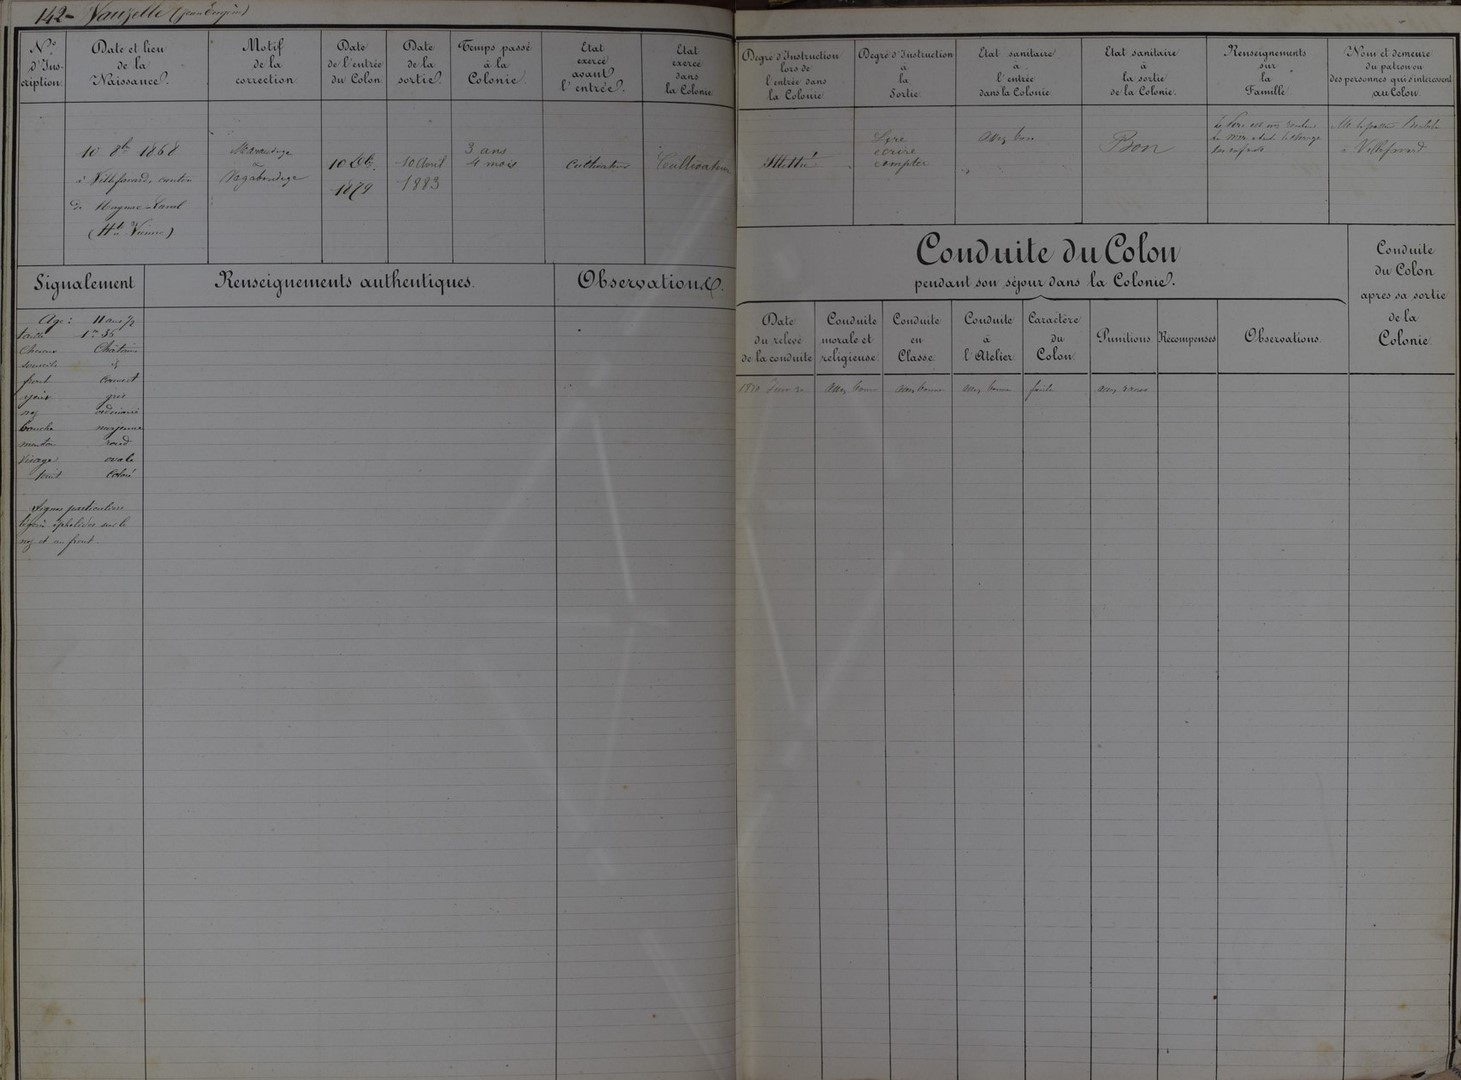 142 - Vauzelle (Jean Eugène)
N.º d'Ins-cription
Date et lieu de la Naissance.
Motif de la correction
Date de l'entrée du Colon
Date de la sortie
Temps passé à la Colonie
Etat exercé avant l'entrée.
Etat exercé dans la Colonie
Degré d'Instruction lors de l'entrée dans la Colonie
Degré d'Instruction à la Sortie
Etat sanitaire à l'entrée dans la Colonie
Etat sanitaire à la sortie de la Colonie.
Renseignements sur la Famille
Nom et demeure du patron ou des personnes qui s'interessent au Colon.
10 8bre 1868
à Villefavard, canton
de Magnac-Laval
(Hte Vienne)
Maraudage
Vagabondage
10
1879
10 Avril
1883
3 ans
4 mois
Cultivateur
Cultivateur
Illettré
Lire
écrire
compter
assez bon
Bon
Le père est
des enfants
Mr le pasteur
à Villefavard
Signalement
Renseignements authentiques.
Observations.
Conduite du Colon
pendant son séjour dans la Colonie.
Conduite du Colon apres sa sortie de la Colonie.
Date du relevé de la conduite
Conduite morale et religieuse
Conduite en Classe
Conduite à l'Atelier
Caractère du Colon
Punitions
Recompenses
Observations
Age : 11 ans 1/2
taille 1m 35
Cheveux Châtains
sourcils id
front couvert
yeux gris
nez ordinaire
bouche moyenne
menton rond
Visage ovale
teint Coloré
Signes particuliers
sur le
nez et au front.
assez bonne
assez bonne
assez bonne
assez